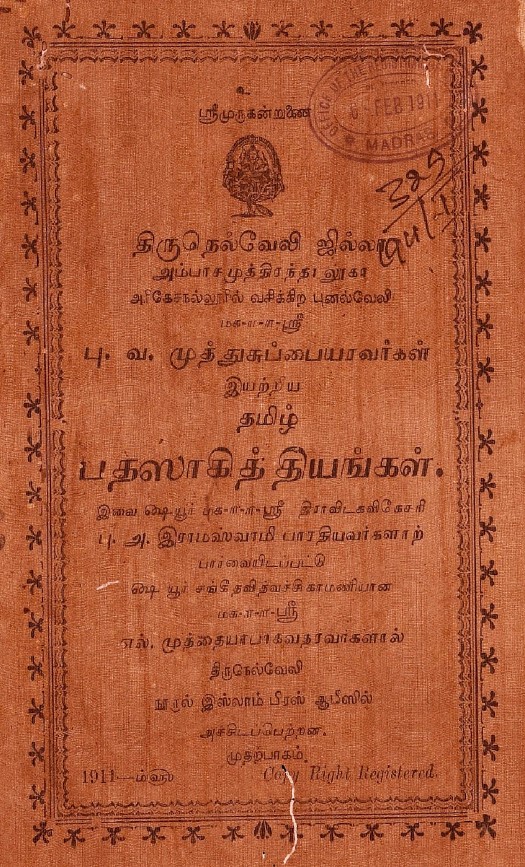 உ
ஸ்ரீமுருகன்றுணை
திருநெல்வேலி ஜில்லா
அம்பாசமுத்திரந்தாலூகா
அரிகேசநல்லூரில் வசிக்கிற புனல்வேலி
மக-ா-ா-ஸ்ரீ
பு. வ. முத்துசுப்பையரவர்கள்
இயற்றிய
தமிழ்
பதஸாகித்தியங்கள்.
இவை ௸யூர் மக-ா-ா-ஸ்ரீ திராவிடகவிகேசரி
பு. அ. இராமஸ்வாமி பாரதியவர்களாற்
பார்வையிடப்பட்டு
௸ யூர் சங்கீதவித்வச்சிகாமணியான
மக-ா-ா-ஸ்ரீ
எல். முத்தையாபாகவதரவர்களால்
திருநெல்வேலி
நூருல் இஸ்லாம் பிரஸ் ஆபீஸில்
அச்சிடப்பெற்றன.
முதற்பாகம்.
1911—ம்௵ Copy Right Registered.
FEB 1911
MADRAS